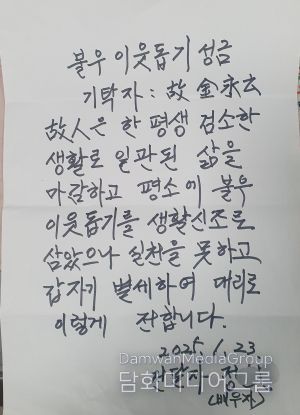 불우 이웃돕기 성금
기탁자: 故 金永玄
故人은 한 평생 검소한
생활로 일관된 삶을
마감하고 평소에 불우
이웃돕기를 생활신조로
삼았으나 실천을 못하고
갑자기 별세하여 대리로
이렇게 전합니다.
2025. 1. 23
DamwanMediaGroup
전달자 정
담화미디어그룹
(배우자)